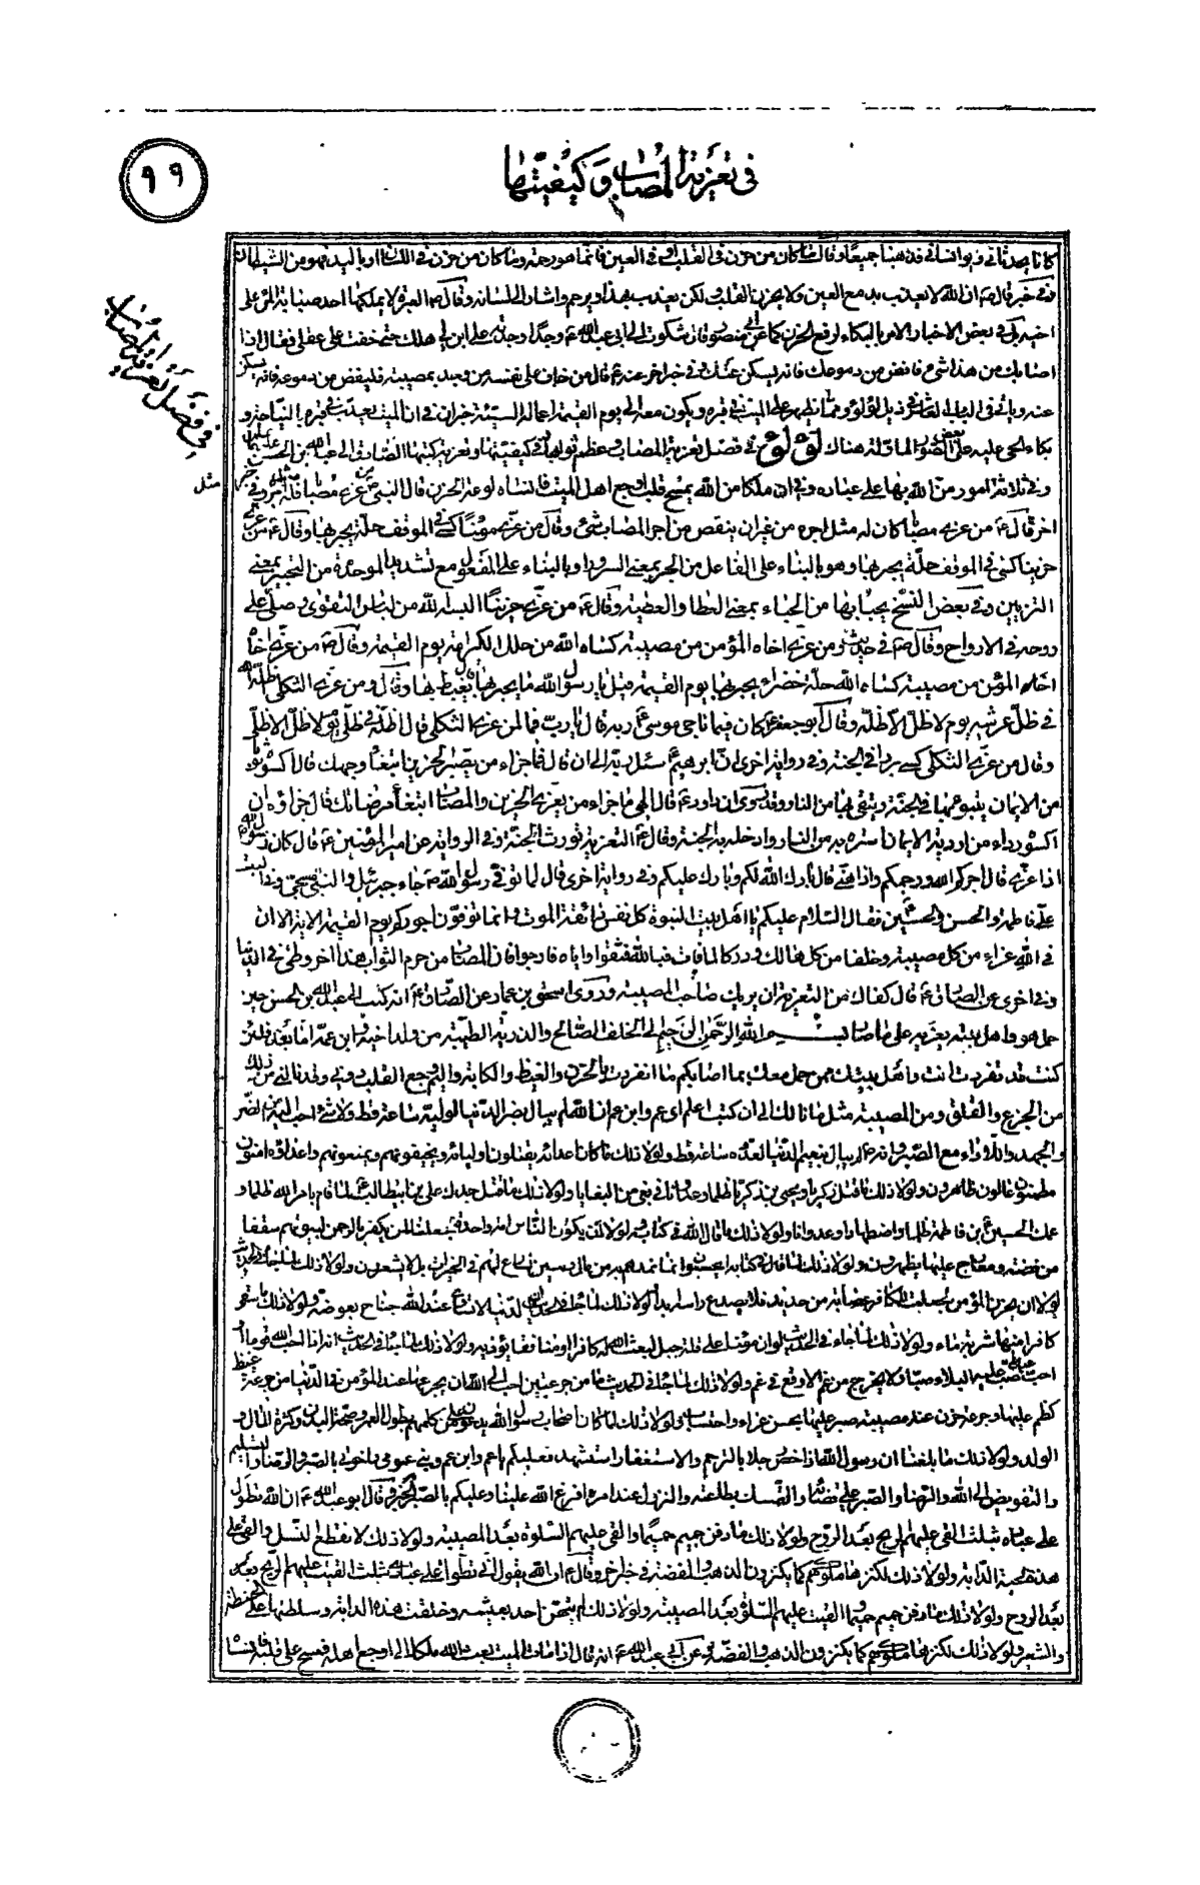 ٩٩
في تعزية المصاب وكيفيّتها
في فضل تعزية المصاب
كانا يصدقاني ويوانساني قد ذهبا جميعا وقال ما كان من حزن في القلب او في العين فانّما هو رحمة وما كان من حزن في اللسان او باليد فهو من الشيطان
وفي خبر قال ص ان الله لا يعذب بدمع العين ولا بحزن القلب ولكن يعذب بهذا او يرحم واشار الى لسانه وقال ص العبرة لا يملكها احد صبابة المرء على
اخيه بل في بعض الاخبار الامر بالبكاء لرفع الحزن كما عن منصور قال شكوت الى ابي عبد الله ع وجدا وجدته على ابن لي هلك حتى خفت على عقلي فقال اذا
اصابك من هذا شيء فافض من دموعك فانه يسكن عنك وفي خبر اخر عنه ع قال من خاف على نفسه من وجد بمصيبة فليفض من دموعه فانه يسكن
عنه وياتي في الباب العاشر في ذيل لؤلؤ ومما يظهر على الميت في قبره ويكون معه الى يوم القيمة اعماله السيئة خبران في ان الميت يعذب في قبره بالنياحة و
بكاء الحي عليه على بعض الصور الماولة هناك لؤلؤ في فضل تعزية المصاب وعظم ثوابها وفي كيفيتها وتعزية كتبها الصادق الى عبد الله بن الحسن عليهما
وفي ثلاثة امور منّ الله بها على عباده وفي ان ملكا من الله يمسح قلب اوجع اهل الميت فانساه لوعة الحزن قال النبي ص من عزى مصابا فله مثل اجره وفي خبر
اخر قال ع من عزى مصابا كان له مثل اجره من غير ان ينقص من اجر المصاب شئ وقال من عزى مؤمنا كسي في الموقف حلّة يحبر بها وقال ع من عزى
حزينا كسي في الموقف حلّة يحبر بها وهو بالبناء على الفاعل من الحبر بمعنى السرور او بالبناء على المفعول مع تشديد الموحدة من التحبير بمعنى
التزيين وفي بعض النسخ يحبا بها من الحباء بمعنى العطا والعطية وقال ع من عزّى حزينًا البسه الله من لباس التقوى وصلى على
روحه في الارواح وقال ص في حديث ومن عزى اخاه المؤمن من مصيبة كساه الله من حلل الكرامة يوم القيمة وقال ص من عزّى اخاه
المؤمن من مصيبة كساه الله حلّة خضراء يحبر بها يوم القيمة قيل يا رسول الله ما يحبر بها قال يغبط بها وقال ومن عزى الثكلى اظله الله
في ظلّ عرشه يوم لا ظلّ الا ظلّه وقال ابو جعفر ع كان فيما ناجى موسى ع ربه قال يا ربّ فما لمن عزى الثكلى قال اظلّه في ظلّي يوم لا ظلّ الا ظلّي
وقال من عزّى الثكلى كسي بردا في الجنة وفي رواية اخرى انّ ابرهيم ع سئل ربه الى ان قال فما جزاء من يصبّر الحزين ابتغاء وجهك قال اكسوه ثوبا
من الايمان يتبوء بها في الجنّة ويتقي بها من النار وقد روى ان داود ع قال الهي ما جزاء من يعزى الحزين والمصاب ابتغاء مرضاتك قال جزاؤه ان
اكسوه رداء من اردية الايمان استره به من النار وادخله به الجنة وقال ع التعزية تورث الجنة وفي الرواية عن امير المؤمنين ع قال كان رسول الله
اذا عزى قال اجركم الله ورحمكم واذا هنّى قال بارك الله لكم وبارك عليكم وفي رواية اخرى قال لما توفي رسول الله ص جاء جبرئيل والنبي مسجى وفي البيت
علي وفاطمة والحسن والحسين فقال السلام عليكم يا اهل بيت النبوة كل نفس ذائقة الموت وانما توفون اجوركم يوم القيمة الاية الا ان
في الله عزاء من كل مصيبة وخلفا من كل هالك ودركا لما فات فبالله فثقوا واياه فارجوا فان المصاب من حرم الثواب هذا اخر وطئي في الدنيا
وفي اخرى عن الصادق ع قال كفاك من التعزية ان يريك صاحب المصيبة وروى اسحق بن عمار عن الصادق ع انه كتب الى عبد الله بن الحسن حين
حمل هو واهل بيته يعزيه على ما صار اليه بسم الله الرحمن الرحيم الى الخلف الصالح والذرية الطيبة من ولد اخيه وابن عمه اما بعد فلئن
كنت قد تفردت انت واهل بيتك ممن حمل معك بما اصابكم ما انفردت بالحزن والغيظ والكابة واليم وجع القلب دوني ولقد نالني من ذلك
من الجزع والقلق وحر المصيبة مثل ما نالك الى ان كتب اعلم اي عم وابن عم ان الله لم يبال بضر الدنيا لوليه ساعة قط ولا شئ احب اليه من الضر
والجهد واللاواء مع الصبر وانه لم يبال بنعيم الدنيا لعدوه ساعة قط ولولا ذلك ما كان اعدائه يقتلون اوليائه ويخيفونهم ويمنعونهم واعداؤه امنون
مطمئنون عالون ظاهرون ولولا ذلك ما قتل زكريا ويحيى بن زكريا ظلما وعدوانا في بغي من البغايا ولولا ذلك ما قتل جدك علي بن ابيطالب ع لما قام بامر الله ظلما و
عمك الحسين بن فاطمة ظلما واضطهادا وعدوانا ولولا ذلك ما قال الله في كتابه ولولا ان يكون الناس امة واحدة لجعلنا لمن يكفر بالرحمن لبيوتهم سقفا
من فضة ومعارج عليها يظهرون ولولا ذلك لما قال في كتابه ايحسبون انما نمدهم به من مال وبنين نسارع لهم في الخيرات بل لا يشعرون ولولا ذلك لما جاء في الحديث
لولا ان يحزن المؤمن لجعلت للكافر عصابة من حديد فلا يصدع راسه ابدا ولولا ذلك لما جاء في الحديث ان الدنيا لا تساوي عند الله جناح بعوضة ولولا ذلك ما سقى
كافرا منها شربة ماء ولولا ذلك لما جاء في الحديث لو ان مؤمنا على قلة جبل لبعث الله له كافرا او منافقا يؤذيه ولولا ذلك لما جاء في الحديث انه اذا احب الله قوما او
احب عبدا صب عليه البلاء صبا فلا يخرج من غم الا وقع في غم ولولا ذلك لما جاء في الحديث ما من جرعتين احب الى الله ان يجرعهما عبده المؤمن في الدنيا من جرعة غيظ
كظم عليها وجرعة حزن عند مصيبة صبر عليها بحسن عزاء واحتساب ولولا ذلك لما كان اصحاب رسول الله يدعون على من ظلمهم بطول العمر وصحة البدن وكثرة المال و
الولد ولولا ذلك ما بلغنا ان رسول الله ص اذا خص رجلا بالترحم والاستغفار استشهد فعليكم يا عم وابن عم وبني عمومتي واخوتي بالصبر والرضا والتسليم
والتفويض الى الله والرضا والصبر على قضائه والتمسك بطاعته والنزول عند امره افرغ الله علينا وعليكم بالصبر الخبر وقال ابو عبد الله ع ان الله تطول
على عباده بثلث القى عليهم الريح بعد الروح ولولا ذلك ما دفن حميم حميما والقى عليهم السلوة بعد المصيبة ولولا ذلك لانقطع النسل والقى على
هذه الحبة الدابة ولولا ذلك لكنزها ملوكهم كما يكنزون الذهب والفضة وفي خبر اخر وقال ع ان الله يقول اني تطولت على عبادي بثلث القيت عليهم الريح بعد
بعد الروح ولولا ذلك ما دفن حميم حميما والقيت عليهم السلوة بعد المصيبة ولولا ذلك لم يتهن احد بعيشه وخلقت هذه الدابة وسلطتها على الحنطة
والشعير ولولا ذلك لكنزها ملوكهم كما يكنزون الذهب والفضة وعن ابي عبد الله ع انه قال اذا مات الميت بعث الله ملكا الى اوجع اهله فمسح على قلبه فانساه